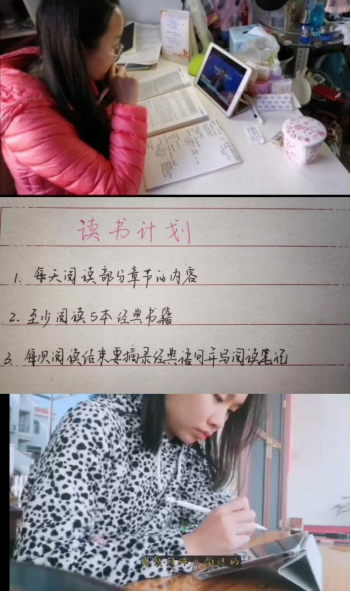 读书计划
1. 每天阅读部分章节的内容
2. 至少阅读5本经典书籍
3. 每次阅读结束要摘录经典语句并写阅读笔记